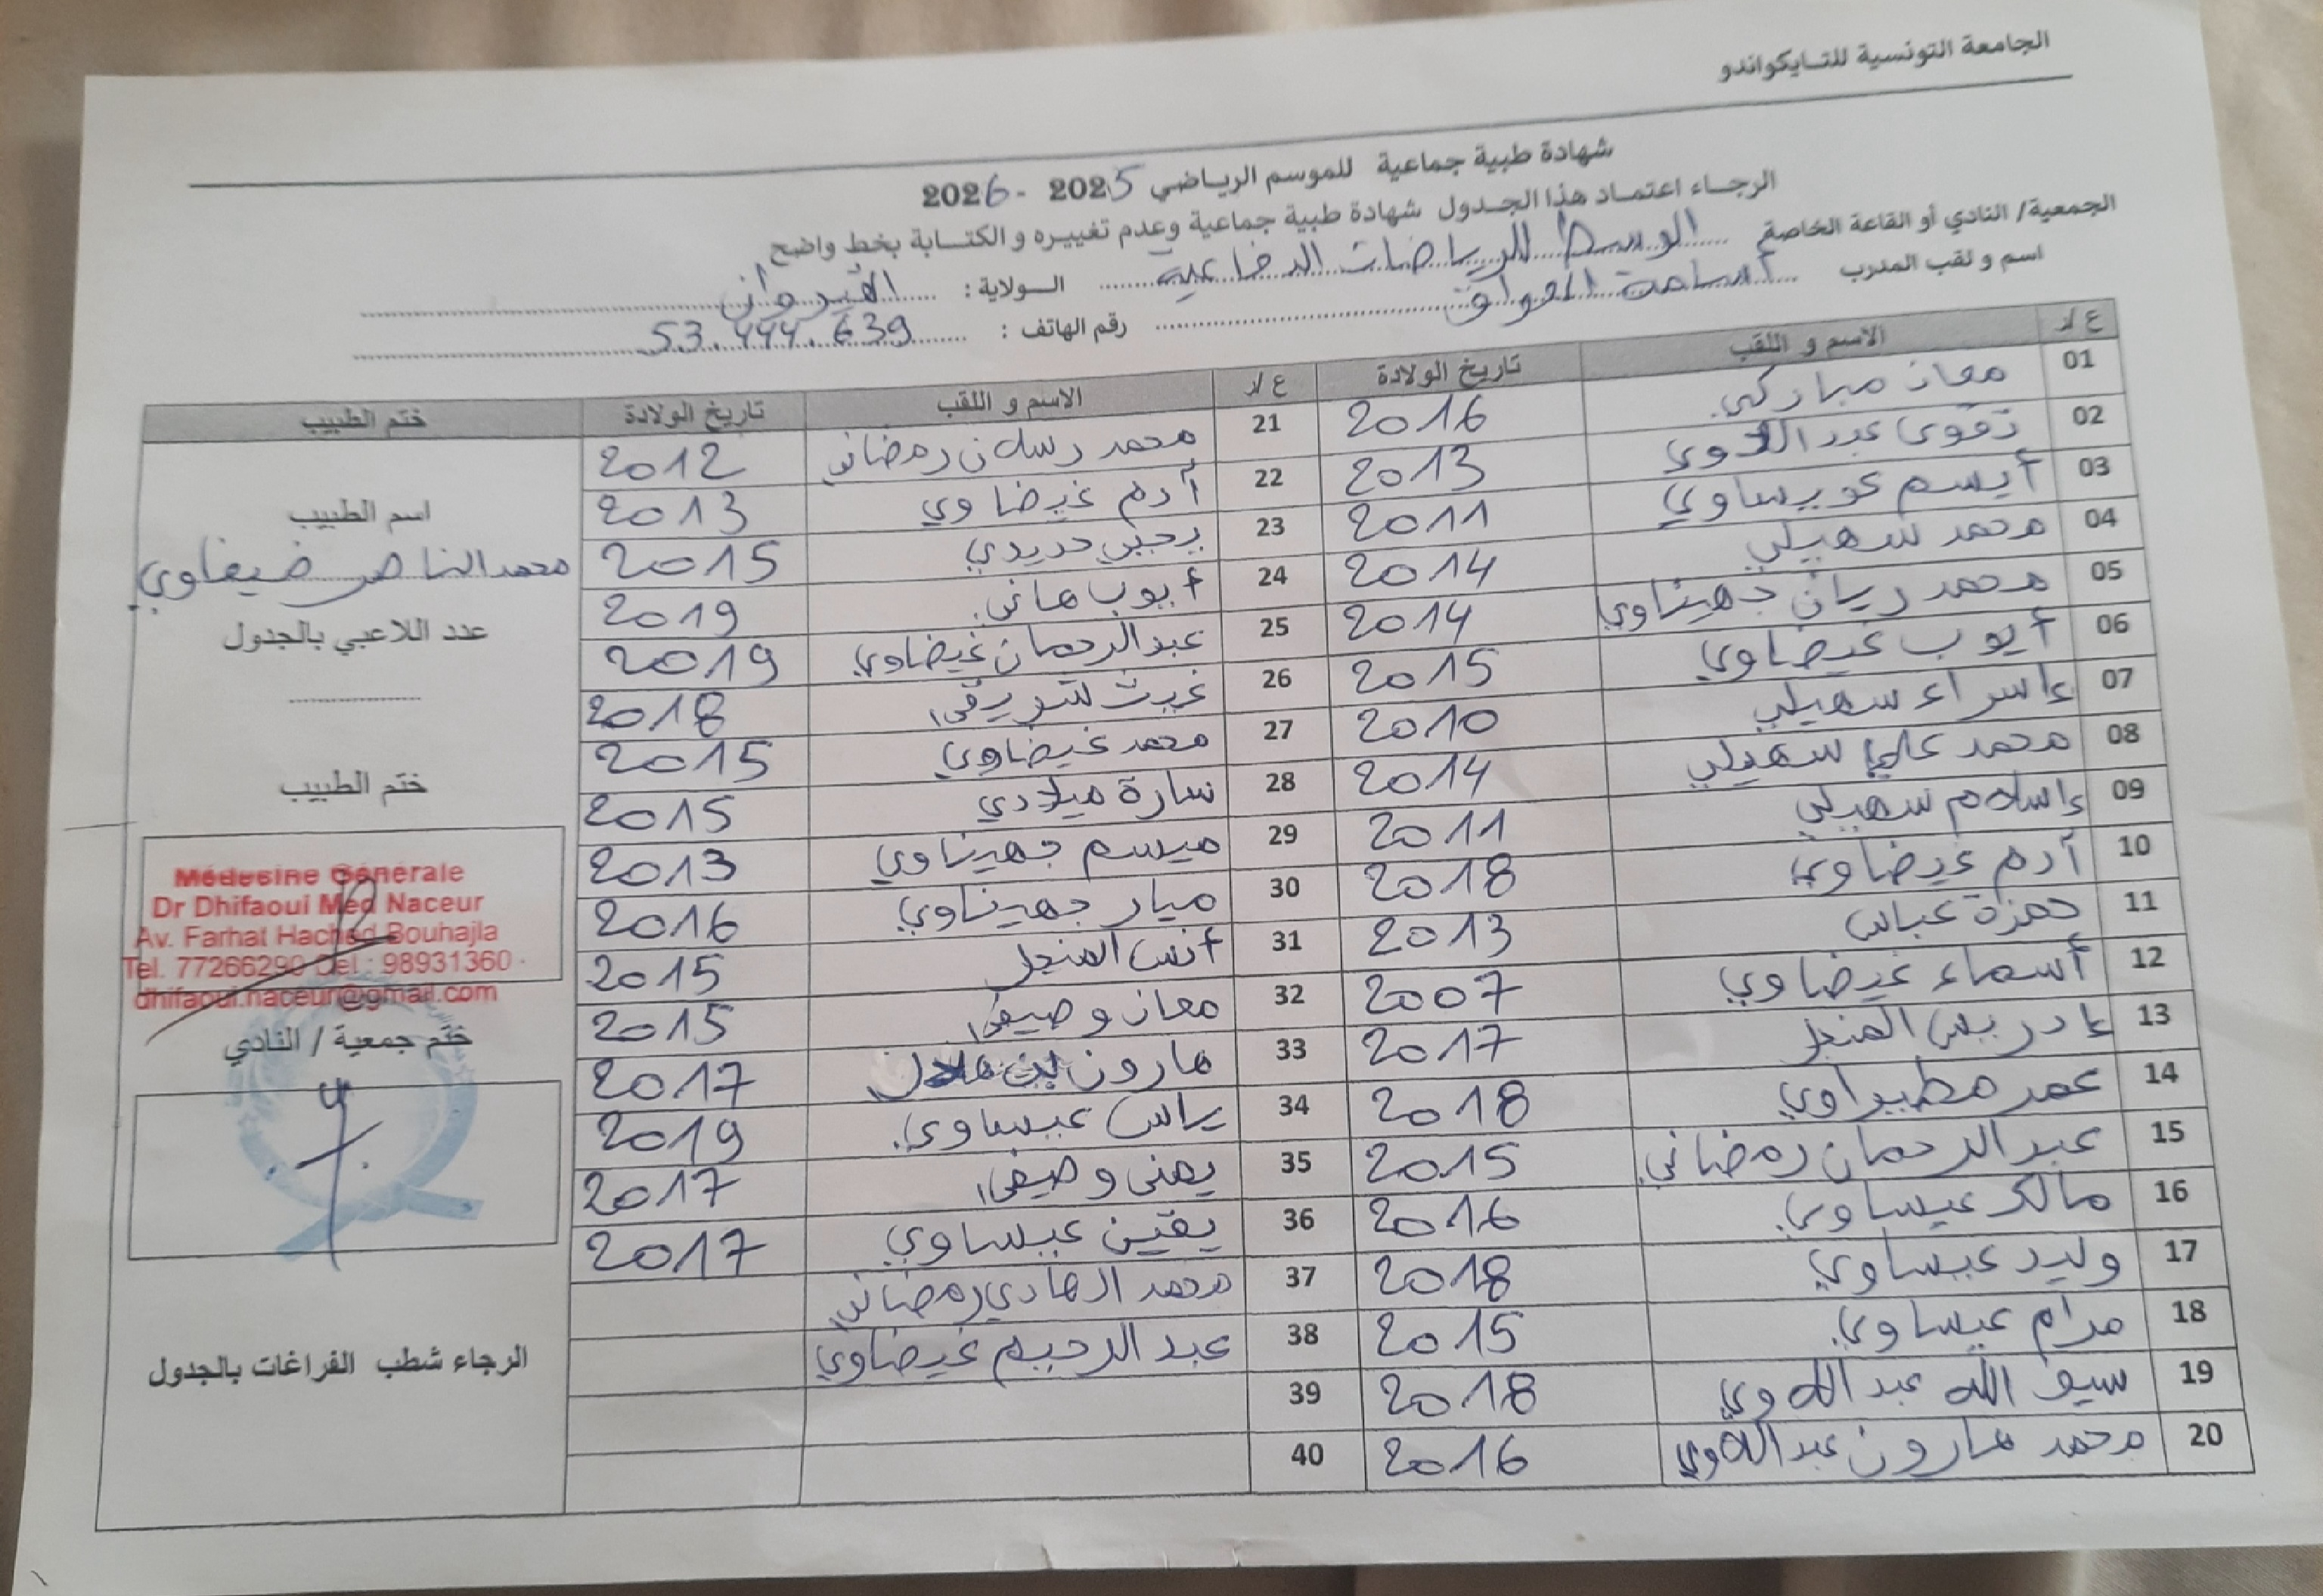 الجامعة التونسية للتايكواندو
شهادة طبية جماعية للموسم الرياضي 2025 - 2026
الرجاء اعتماد هذا الجدول شهادة طبية جماعية وعدم تغييره و الكتابة بخط واضح
الجمعية/ النادي أو القاعة الخاصة الوسط للرياضات الدفاعية الولاية : القيروان
اسم و لقب المدرب أسامة العواق رقم الهاتف : 53.444.639
ع/ر الاسم و اللقب تاريخ الولادة ع/ر الاسم و اللقب تاريخ الولادة ختم الطبيب
01 معاذ مباركي 2016 21 محمد رسلان رمضاني 2012
02 تقوى عبداللاوي 2013 22 آدم غيضاوي 2013
03 أيسم عويساوي 2011 23 يحيى حديدي 2015
04 محمد سهيلي 2014 24 أيوب هاني 2019
05 محمد ريان جهيناوي 2014 25 عبد الرحمان غيضاوي 2019
06 أيوب غيضاوي 2015 26 غيث 2018
07 إسراء سهيلي 2010 27 محمد غيضاوي 2015
08 محمد علي سهيلي 2014 28 سارة ميلادي 2015
09 إسلام سهيلي 2011 29 ميسم جهيناوي 2013
10 آدم غيضاوي 2018 30 ميار جهيناوي 2016
11 حمزة عباس 2013 31 أنس المنجل 2015
12 أسماء غيضاوي 2007 32 معاذ وصيفي 2015
13 إدريس المنجل 2017 33 هارون بن 2017
14 عمر مطيراوي 2018 34 ياس عيساوي 2019
15 عبد الرحمان رمضاني 2015 35 يمنى وصيفي 2017
16 مالك عيساوي 2016 36 يقين عيساوي 2017
17 وليد عيساوي 2018 37 محمد الهادي رمضاني
18 مرام عيساوي 2015 38 عبد الرحيم غيضاوي
19 سيف الله عبد اللاوي 2018 39
20 محمد هارون عبد اللاوي 2016 40
اسم الطبيب
محمد الناصر ضيفاوي
عدد اللاعبي بالجدول
ختم الطبيب
Médecine Générale
Dr Dhifaoui Med Naceur
Av. Farhat Hached Bouhajla
Tel. 77266290 Cel : 98931360
dhifaoui.naceur@gmail.com
ختم جمعية / النادي
الرجاء شطب الفراغات بالجدول